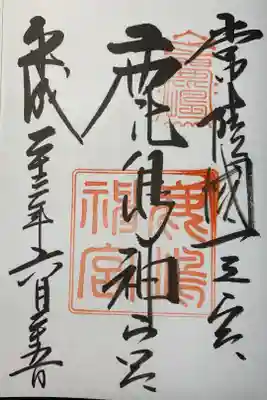 常陸國一之宮
鹿島神宮
平成二十三年六月二十五日
鹿島
神宮